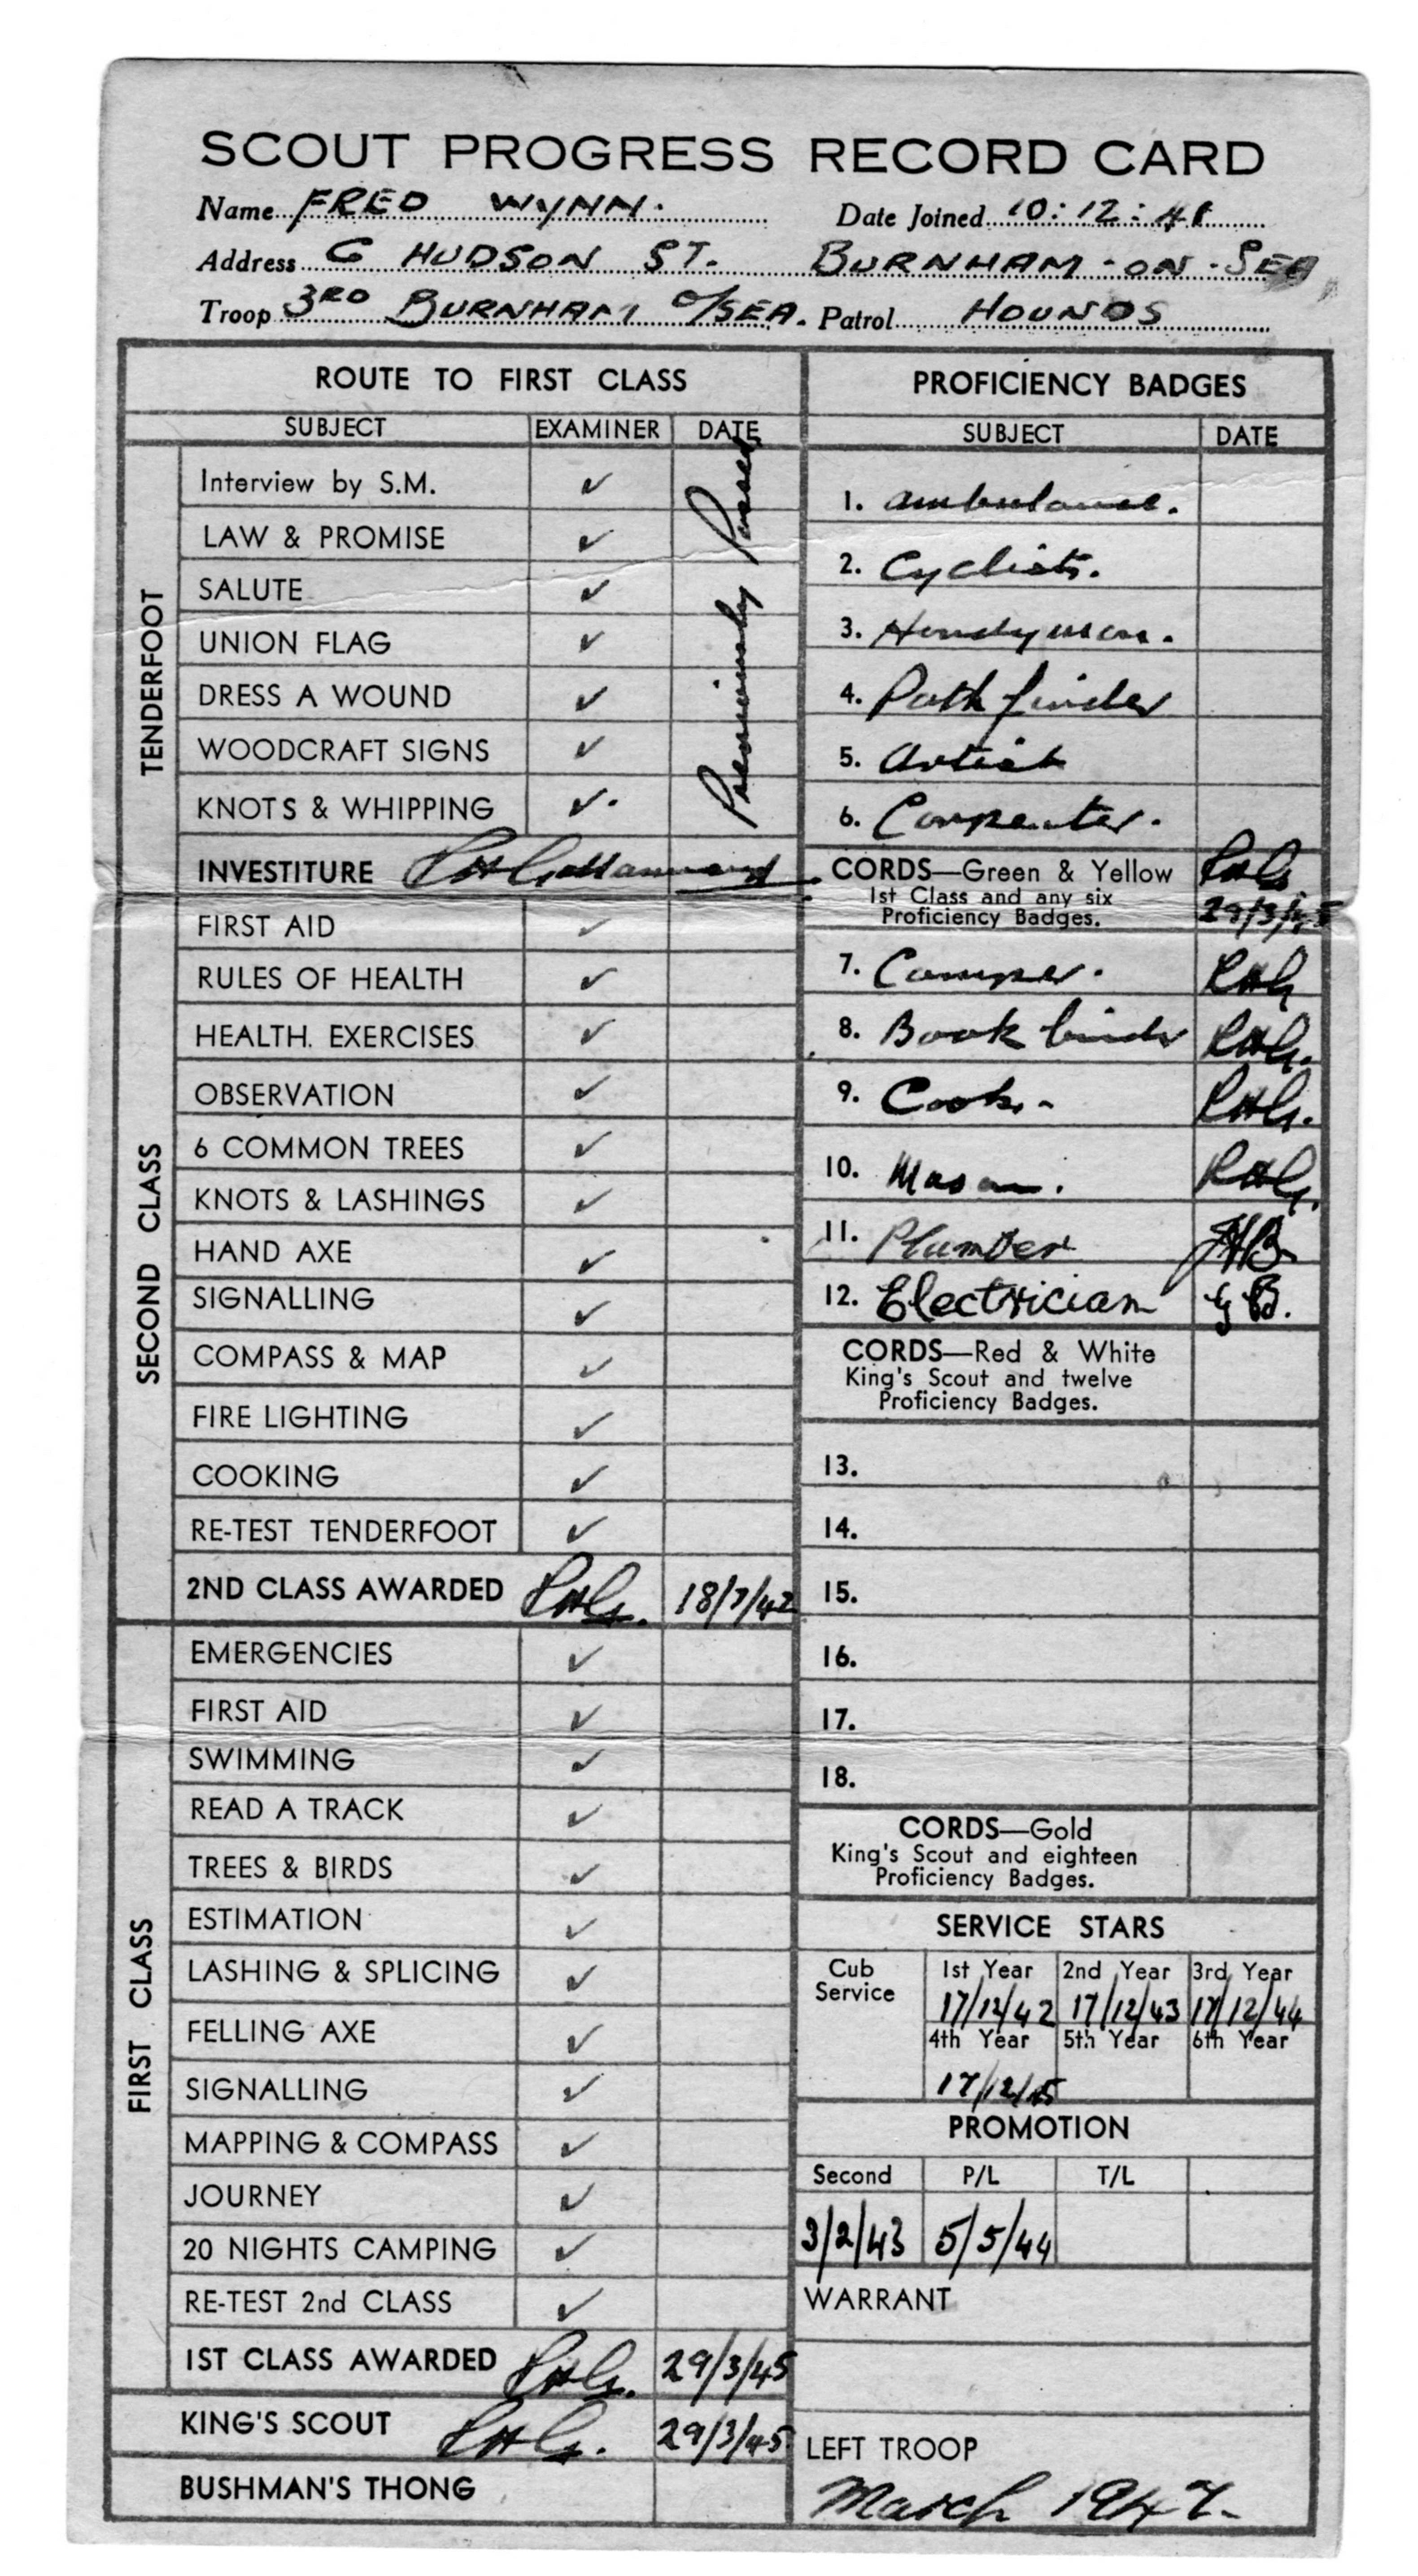 SCOUT PROGRESS RECORD CARD
Name FRED WYNN. Date Joined 10:12:41
Address 6 HUDSON ST. BURNHAM-ON-SEA
Troop 3RD BURNHAM O/SEA. Patrol HOUNDS
ROUTE TO FIRST CLASS
SUBJECT EXAMINER DATE
TENDERFOOT
Interview by S.M. ✓
LAW & PROMISE ✓
SALUTE ✓
UNION FLAG ✓
DRESS A WOUND ✓
WOODCRAFT SIGNS ✓
KNOTS & WHIPPING ✓.
Previously Passed
INVESTITURE
SECOND CLASS
FIRST AID ✓
RULES OF HEALTH ✓
HEALTH. EXERCISES ✓
OBSERVATION ✓
6 COMMON TREES ✓
KNOTS & LASHINGS ✓
HAND AXE ✓
SIGNALLING ✓
COMPASS & MAP ✓
FIRE LIGHTING ✓
COOKING ✓
RE-TEST TENDERFOOT ✓
2ND CLASS AWARDED RHG. 18/7/42
FIRST CLASS
EMERGENCIES ✓
FIRST AID ✓
SWIMMING ✓
READ A TRACK ✓
TREES & BIRDS ✓
ESTIMATION ✓
LASHING & SPLICING ✓
FELLING AXE ✓
SIGNALLING ✓
MAPPING & COMPASS ✓
JOURNEY ✓
20 NIGHTS CAMPING ✓
RE-TEST 2nd CLASS ✓
1ST CLASS AWARDED RHG. 29/3/45
KING'S SCOUT RHG. 29/3/45
BUSHMAN'S THONG
PROFICIENCY BADGES
SUBJECT DATE
1. Ambulance.
2. Cyclists.
3. Handyman.
4. Path finder
5. Artist
6. Carpenter.
CORDS—Green & Yellow RHG
1st Class and any six
Proficiency Badges. 29/3/45
7. Camper. RHG
8. Book binder RHG.
9. Cook. - RHG.
10. Mason. RHG.
11. Plumber JHB.
12. Electrician G B.
CORDS—Red & White
King's Scout and twelve
Proficiency Badges.
13.
14.
15.
16.
17.
18.
CORDS—Gold
King's Scout and eighteen
Proficiency Badges.
SERVICE STARS
Cub Service
1st Year 2nd Year 3rd Year
17/12/42 17/12/43 17/12/44
4th Year 5th Year 6th Year
17/12/45
PROMOTION
Second P/L T/L
3/2/43 5/5/44
WARRANT
LEFT TROOP
March 1947.